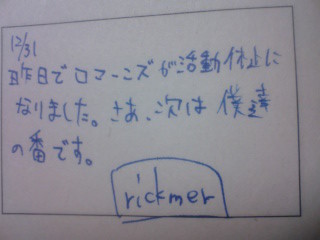 12/31
昨日でロマーンズが活動休止に
なりました。さあ、次は僕達
の番です。
rickmer